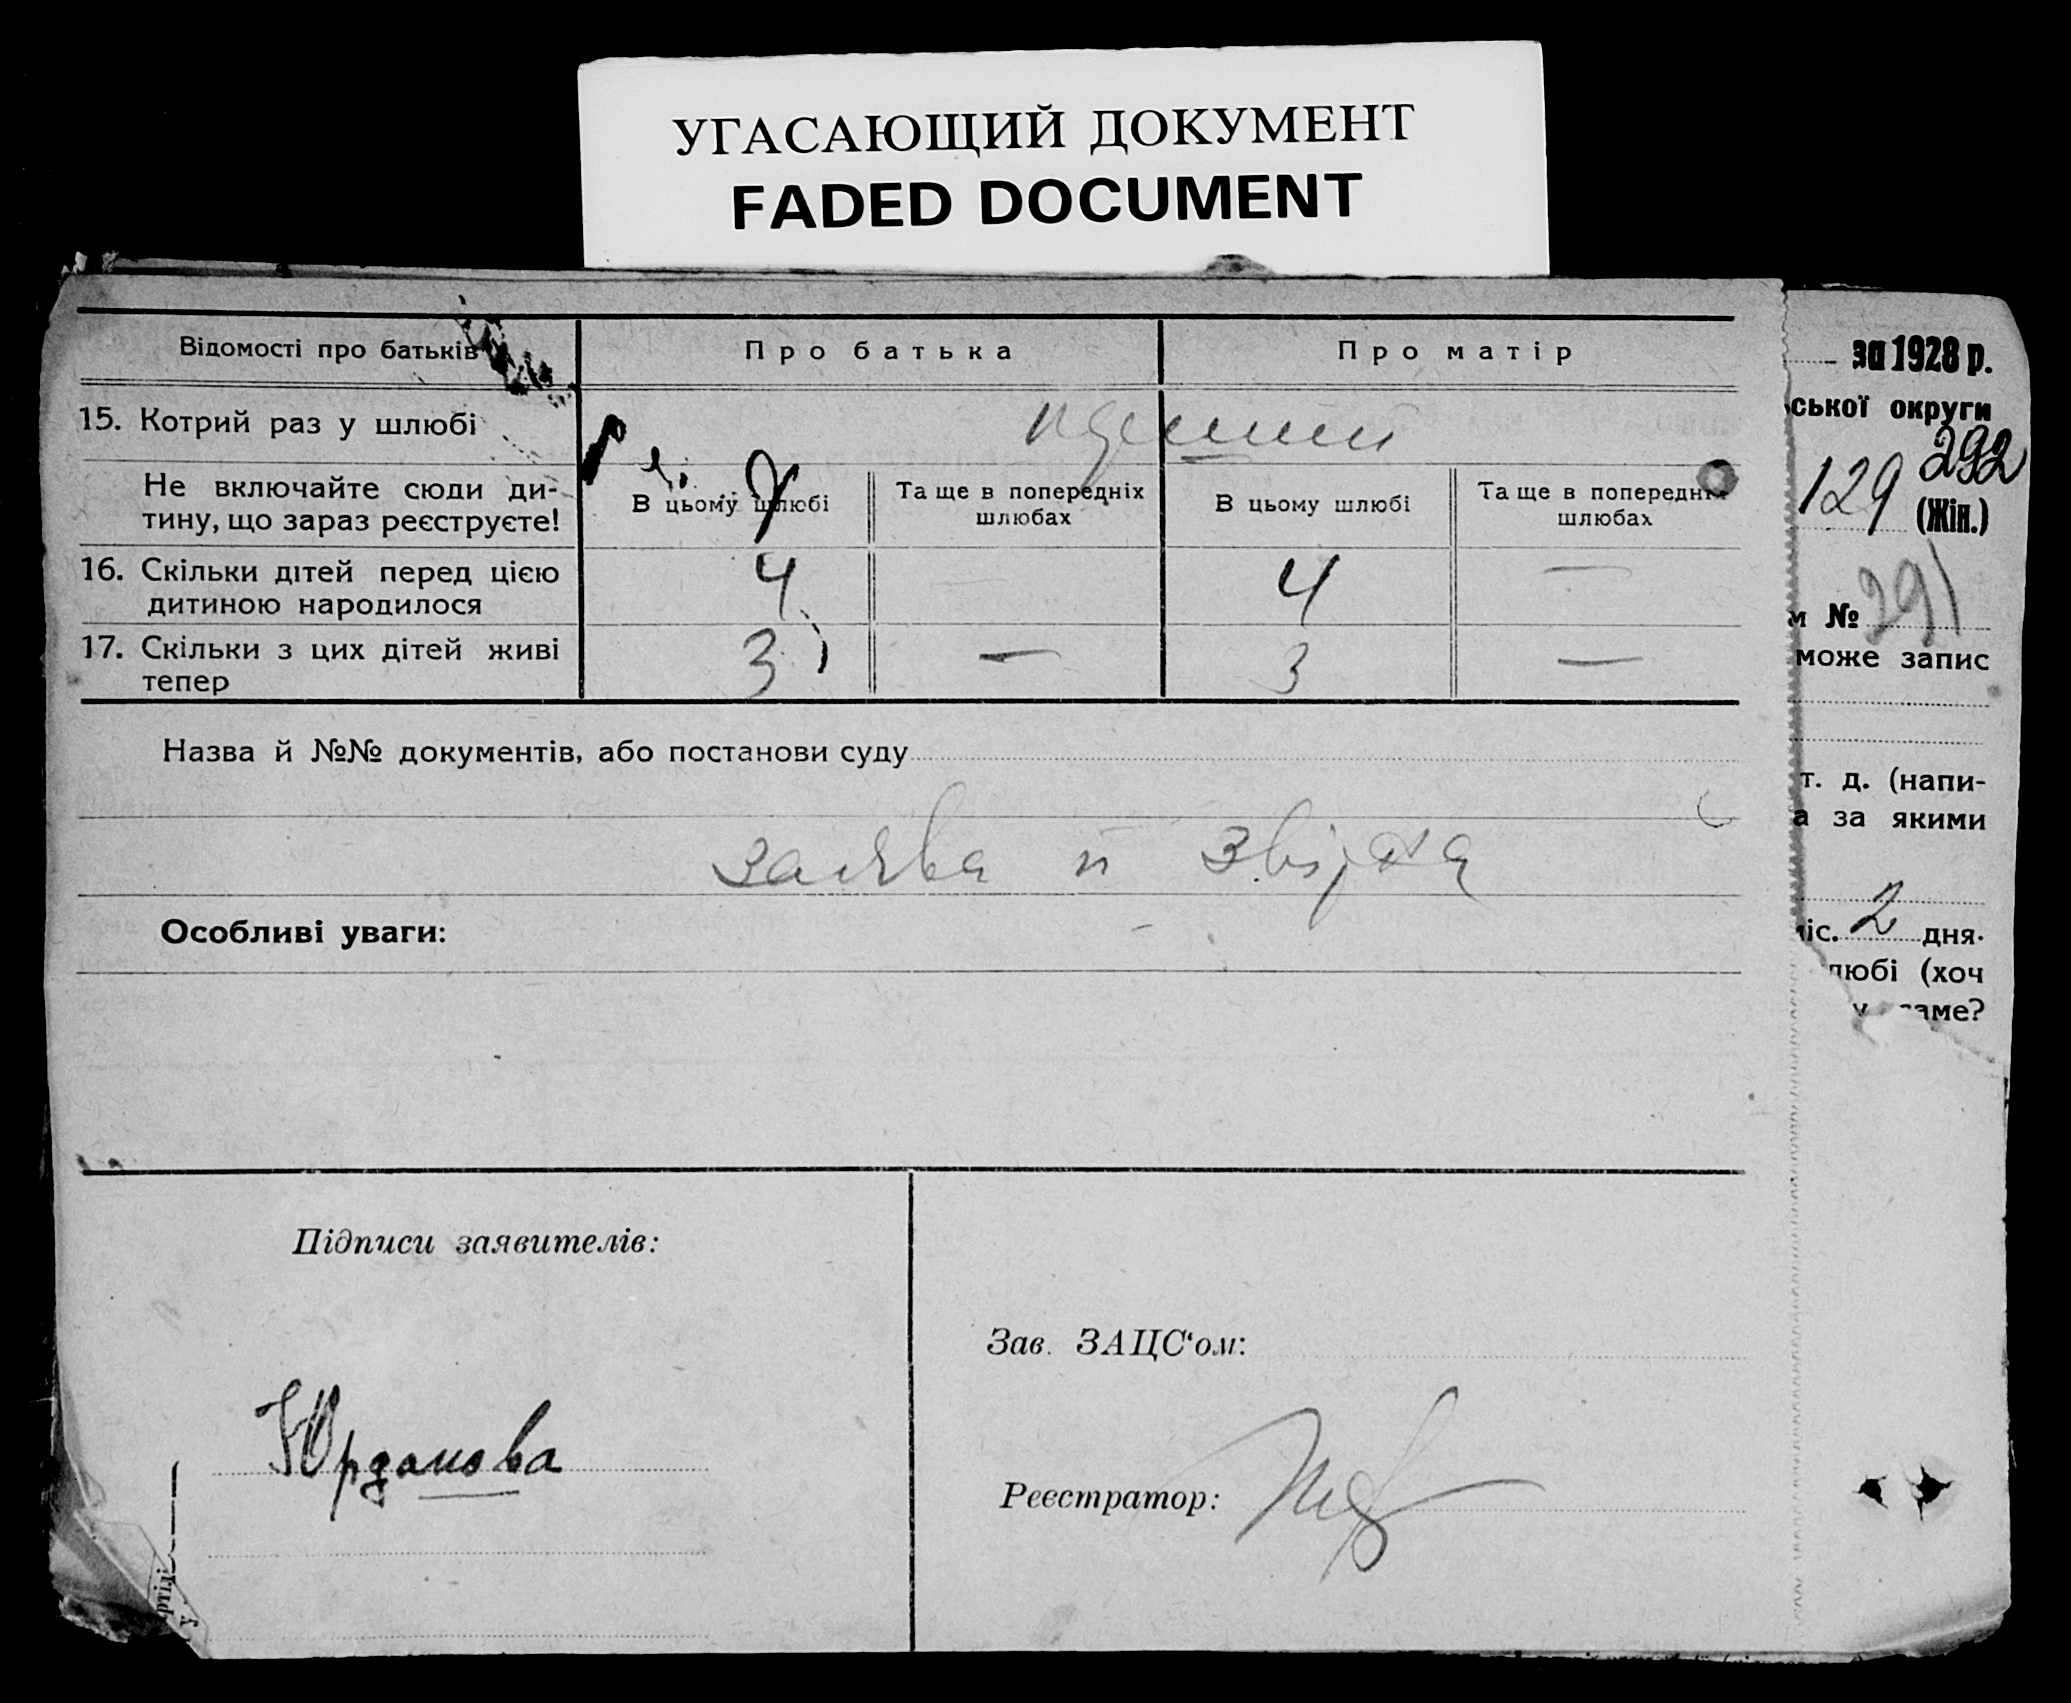 УГАСАЮЩИЙ ДОКУМЕНТ
FADED DOCUMENT
Відомості про батьків
Про батька
Про матір
15. Котрий раз у шлюбі
Не включайте сюди ди-
тину, що зараз реєструєте!
В цьому шлюбі
Та ще в попередніх
шлюбах
В цьому шлюбі
Та ще в попередніх
шлюбах
16. Скільки дітей перед цією
дитиною народилося
4
4 —
17. Скільки з цих дітей живі
тепер
3 —
3 —
Назва й №№ документів, або постанови суду
заява й
Особливі уваги:
Підписи заявителів:
Юрданова
Зав. ЗАЦС'ом:
Реєстратор:
за 1928 р.
ської округи
292
129 (Жін.)
м № 291
може запис
т. д. (напи-
а за якими
іс. 2 дня.
любі (хоч
у саме?